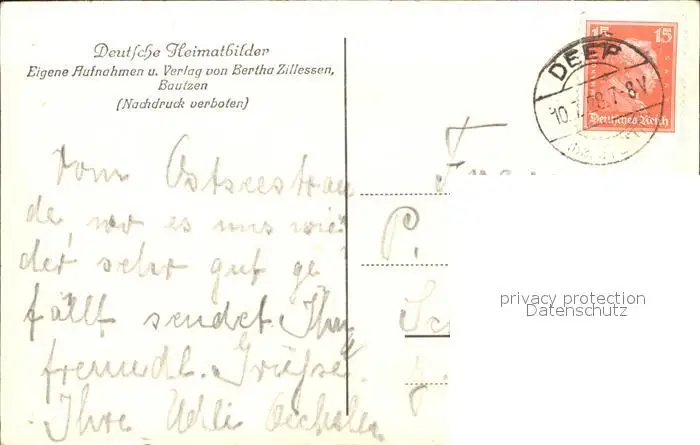 Deutsche Heimatbilder
Eigene Aufnahmen u. Verlag von Bertha Zillessen,
Bautzen
(Nachdruck verboten)
15 15
Deutsches Reich
DEEP
10.7.28.7-8V
Vom Ostseestran
de, wo es uns wie
der sehr gut ge
fällt sendet Ihnen
freundl. Grüße.
Ihre
P.
privacy protection
Datenschutz